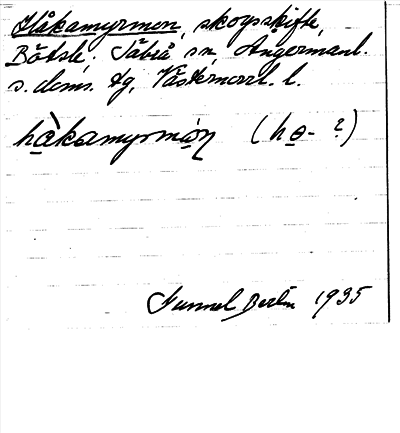 Håkamyrmon, skogsskifte,
Bölsle, Säbrå sn, Ångermanl.
s. doms. dg, Västernorrl. l.
hà̱kamyrmo̱n (ho̱- ?)
Gunnel Berlin 1935